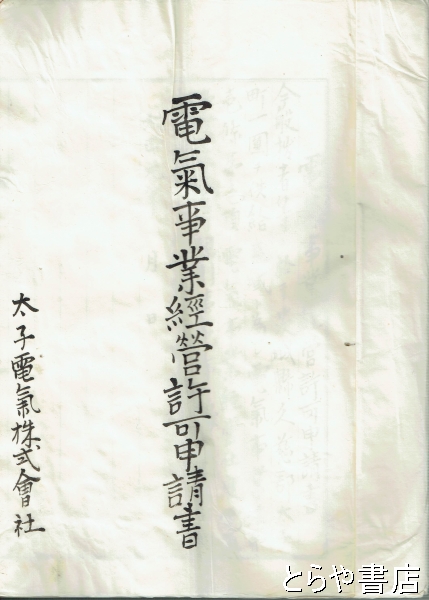 電氣事業経営許可申請書
太子電氣株式會社
とらや書店